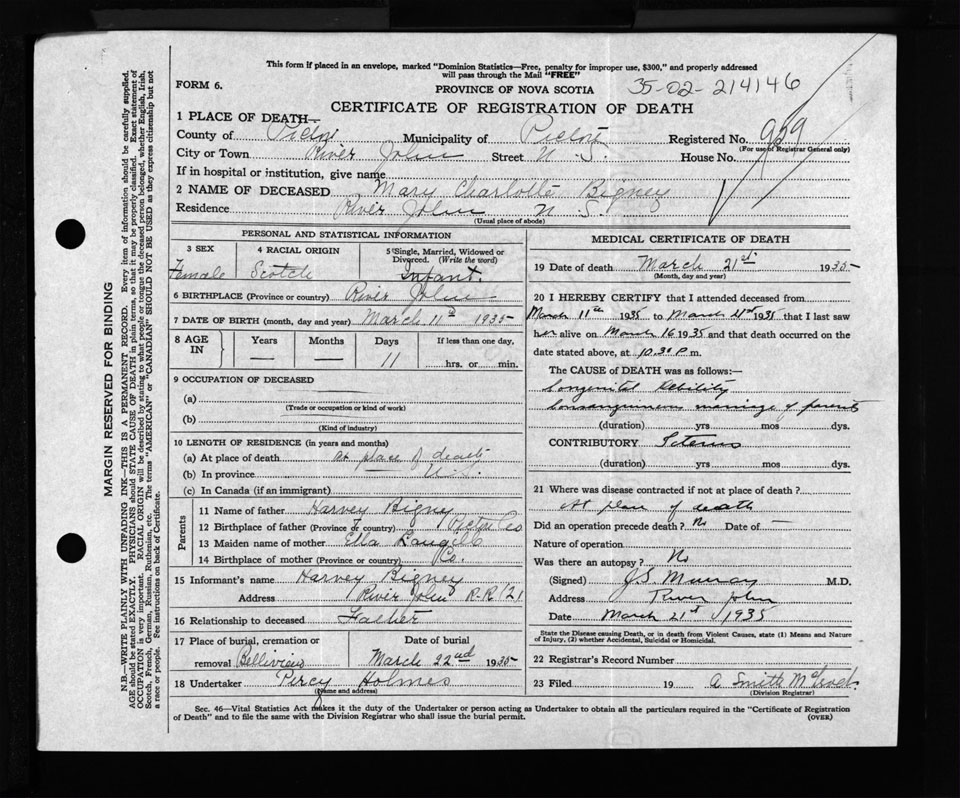 This form if placed in an envelope, marked "Dominion Statistics—Free, penalty for improper use, $300," and properly addressed
will pass through the Mail "FREE"
FORM 6.
PROVINCE OF NOVA SCOTIA
35-02-214146
CERTIFICATE OF REGISTRATION OF DEATH
1 PLACE OF DEATH—
County of Pictou Municipality of Pictou Registered No. 959
(For use of Registrar General only)
City or Town River John Street N. S. House No.
If in hospital or institution, give name
2 NAME OF DECEASED Mary Charlotte Bigney
Residence River John N. S.
(Usual place of abode)
PERSONAL AND STATISTICAL INFORMATION
3 SEX 4 RACIAL ORIGIN 5 Single, Married, Widowed or
Divorced. (Write the word)
Female Scotch Infant.
6 BIRTHPLACE (Province or country) River John
7 DATE OF BIRTH (month, day and year) March 11th 1935
8 AGE IN Years Months Days If less than one day,
— — 11 hrs. or min.
9 OCCUPATION OF DECEASED
(a)
(Trade or occupation or kind of work)
(b)
(Kind of industry)
10 LENGTH OF RESIDENCE (in years and months)
(a) At place of death at place of death
(b) In province
(c) In Canada (if an immigrant)
Parents
11 Name of father Harvey Bigney
12 Birthplace of father (Province or country) Pictou Co
13 Maiden name of mother Ella
14 Birthplace of mother (Province or country) Co.
15 Informant's name Harvey Bigney
Address River John R-R
16 Relationship to deceased Father
17 Place of burial, cremation or Date of burial
removal March 22nd 1935
18 Undertaker Percy Holmes
(Name and address)
MEDICAL CERTIFICATE OF DEATH
19 Date of death March 21st 1935
(Month, day and year)
20 I HEREBY CERTIFY that I attended deceased from
March 11th 1935 to March 21st 1935 that I last saw
her alive on March 16 1935 and that death occurred on the
date stated above, at 10.30 P. m.
The CAUSE of DEATH was as follows:—
Congenital Debility
Consanguineous marriage of parents
(duration) yrs mos dys.
CONTRIBUTORY Icterus
(duration) yrs mos dys.
21 Where was disease contracted if not at place of death?
At place of death
Did an operation precede death? No Date of —
Nature of operation
Was there an autopsy? No
(Signed) J.S. Murray M.D.
Address River John
Date March 21st 1935
State the Disease causing Death, or in death from Violent Causes, state (1) Means and Nature
of Injury, (2) whether Accidental, Suicidal or Homicidal.
22 Registrar's Record Number
23 Filed 19 A Smith
(Division Registrar)
Sec. 46—Vital Statistics Act makes it the duty of the Undertaker or person acting as Undertaker to obtain all the particulars required in the "Certificate of Registration
of Death" and to file the same with the Division Registrar who shall issue the burial permit. (OVER)
MARGIN RESERVED FOR BINDING
N.B.—WRITE PLAINLY WITH UNFADING INK—THIS IS A PERMANENT RECORD. Every item of information should be carefully supplied.
AGE should be stated EXACTLY. PHYSICIANS should STATE CAUSE OF DEATH in plain terms, so that it may be properly classified. Exact statement of
OCCUPATION is very important. RACIAL ORIGIN will be described by stating to what people or tongue the deceased person belonged, whether English, Irish,
Scotch, French, German, Russian, Ruthenian, etc. The terms "AMERICAN" or "CANADIAN" SHOULD NOT BE USED as they express citizenship but not
a race or people. See instructions on back of Certificate.